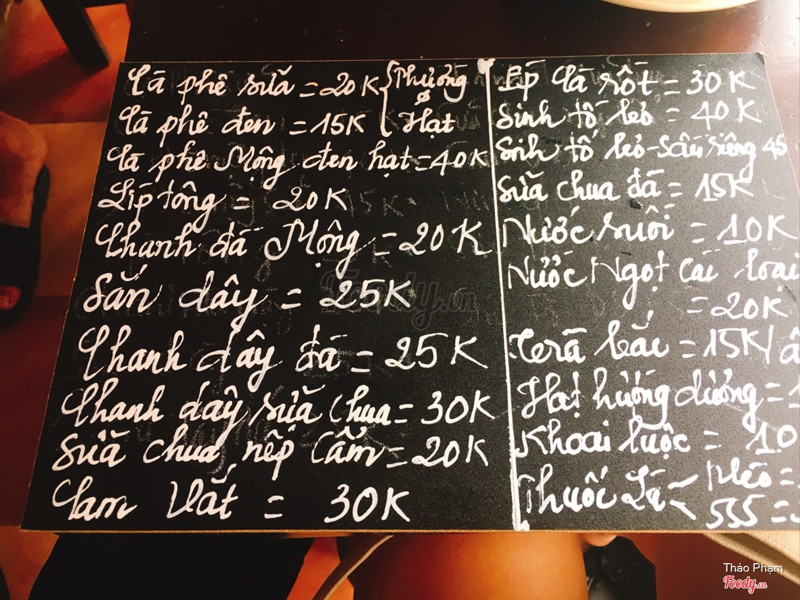 Cà phê sữa = 20K
Cà phê đen = 15K
{ Phường
Hạt
Cà phê Mộng đen hạt = 40K
Líp tông = 20K
Chanh đá Mộng = 20K
Sắn dây = 25K
Chanh dây đá = 25K
Chanh dây sữa chua = 30K
Sữa chua nếp Cẩm = 20K
Cam Vắt = 30K
Ép Cà rốt = 30K
Sinh tố bơ = 40K
Sinh tố bơ - Sầu riêng 45
Sữa chua đá = 15K
Nước suối = 10K
Nước Ngọt Các loại
= 20K
bắc = 15K/
Hạt hướng dương = 1
Khoai luộc = 10
Thuốc Lá Mèo =
555 =
Foody.vn
Thảo Phạm
Foody.vn